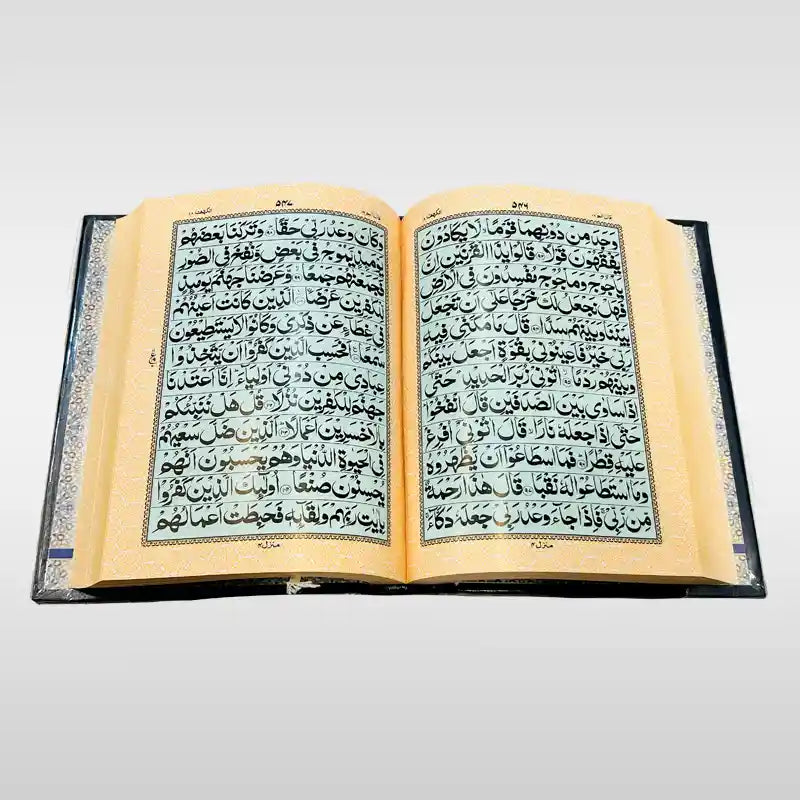 قال الم ١٦
٥٤٦
الكهف ١٨
وَجَدَ مِنْ دُوْنِهِمَا قَوْمًا لَّا يَكَادُوْنَ
يَفْقَهُوْنَ قَوْلًا ۝ قَالُوْا يٰذَا الْقَرْنَيْنِ اِنَّ
يَاْجُوْجَ وَمَاْجُوْجَ مُفْسِدُوْنَ فِى الْاَرْضِ
فَهَلْ نَجْعَلُ لَكَ خَرْجًا عَلٰٓى اَنْ تَجْعَلَ
بَيْنَنَا وَبَيْنَهُمْ سَدًّا ۝ قَالَ مَا مَكَّنِّىْ فِيْهِ
رَبِّىْ خَيْرٌ فَاَعِيْنُوْنِىْ بِقُوَّةٍ اَجْعَلْ بَيْنَكُمْ
وَبَيْنَهُمْ رَدْمًا ۝ اٰتُوْنِىْ زُبَرَ الْحَدِيْدِ حَتّٰٓى
اِذَا سَاوٰى بَيْنَ الصَّدَفَيْنِ قَالَ انْفُخُوْا
حَتّٰٓى اِذَا جَعَلَهٗ نَارًا قَالَ اٰتُوْنِىْٓ اُفْرِغْ
عَلَيْهِ قِطْرًا ۝ فَمَا اسْطَاعُوْٓا اَنْ يَّظْهَرُوْهُ
وَمَا اسْتَطَاعُوْا لَهٗ نَقْبًا ۝ قَالَ هٰذَا رَحْمَةٌ
مِّنْ رَّبِّىْ فَاِذَا جَآءَ وَعْدُ رَبِّىْ جَعَلَهٗ دَكَّآءَ
منزل ٤
قال الم ١٦
٥٤٧
الكهف ١٨
وَكَانَ وَعْدُ رَبِّىْ حَقًّا ۝ وَتَرَكْنَا بَعْضَهُمْ
يَوْمَئِذٍ يَّمُوْجُ فِىْ بَعْضٍ وَّنُفِخَ فِى الصُّوْرِ
فَجَمَعْنٰهُمْ جَمْعًا ۝ وَّعَرَضْنَا جَهَنَّمَ يَوْمَئِذٍ
لِّلْكٰفِرِيْنَ عَرْضًا ۝ الَّذِيْنَ كَانَتْ اَعْيُنُهُمْ
فِىْ غِطَآءٍ عَنْ ذِكْرِىْ وَكَانُوْا لَا يَسْتَطِيْعُوْنَ
سَمْعًا ۝ اَفَحَسِبَ الَّذِيْنَ كَفَرُوْٓا اَنْ يَّتَّخِذُوْا
عِبَادِىْ مِنْ دُوْنِىْٓ اَوْلِيَآءَ اِنَّآ اَعْتَدْنَا
جَهَنَّمَ لِلْكٰفِرِيْنَ نُزُلًا ۝ قُلْ هَلْ نُنَبِّئُكُمْ
بِالْاَخْسَرِيْنَ اَعْمَالًا ۝ اَلَّذِيْنَ ضَلَّ سَعْيُهُمْ
فِى الْحَيٰوةِ الدُّنْيَا وَهُمْ يَحْسَبُوْنَ اَنَّهُمْ
يُحْسِنُوْنَ صُنْعًا ۝ اُولٰٓئِكَ الَّذِيْنَ كَفَرُوْا
بِاٰيٰتِ رَبِّهِمْ وَلِقَآئِهٖ فَحَبِطَتْ اَعْمَالُهُمْ
منزل ٤